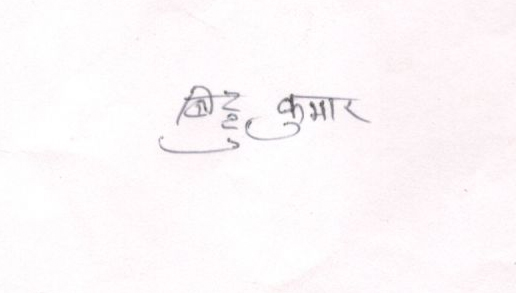 बिट्टू कुमार